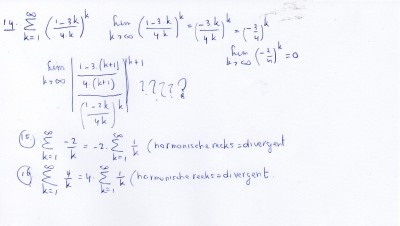 14. ∞∑k=1 (1-3k/4k)^k lim k→∞ (1-3k/4k)^k = (-3k/4k)^k = (-3/4)^k
lim k→∞ (-3/4)^k = 0
lim k→∞ |(1-3.(k+1)/4(k+1))^k+1 / (1-3k/4k)^k| ????
15. ∞∑k=1 -2/k = -2. ∞∑k=1 1/k (harmonische reeks = divergent
16. ∞∑k=1 4/k = 4. ∞∑k=1 1/k (harmonische reeks = divergent.